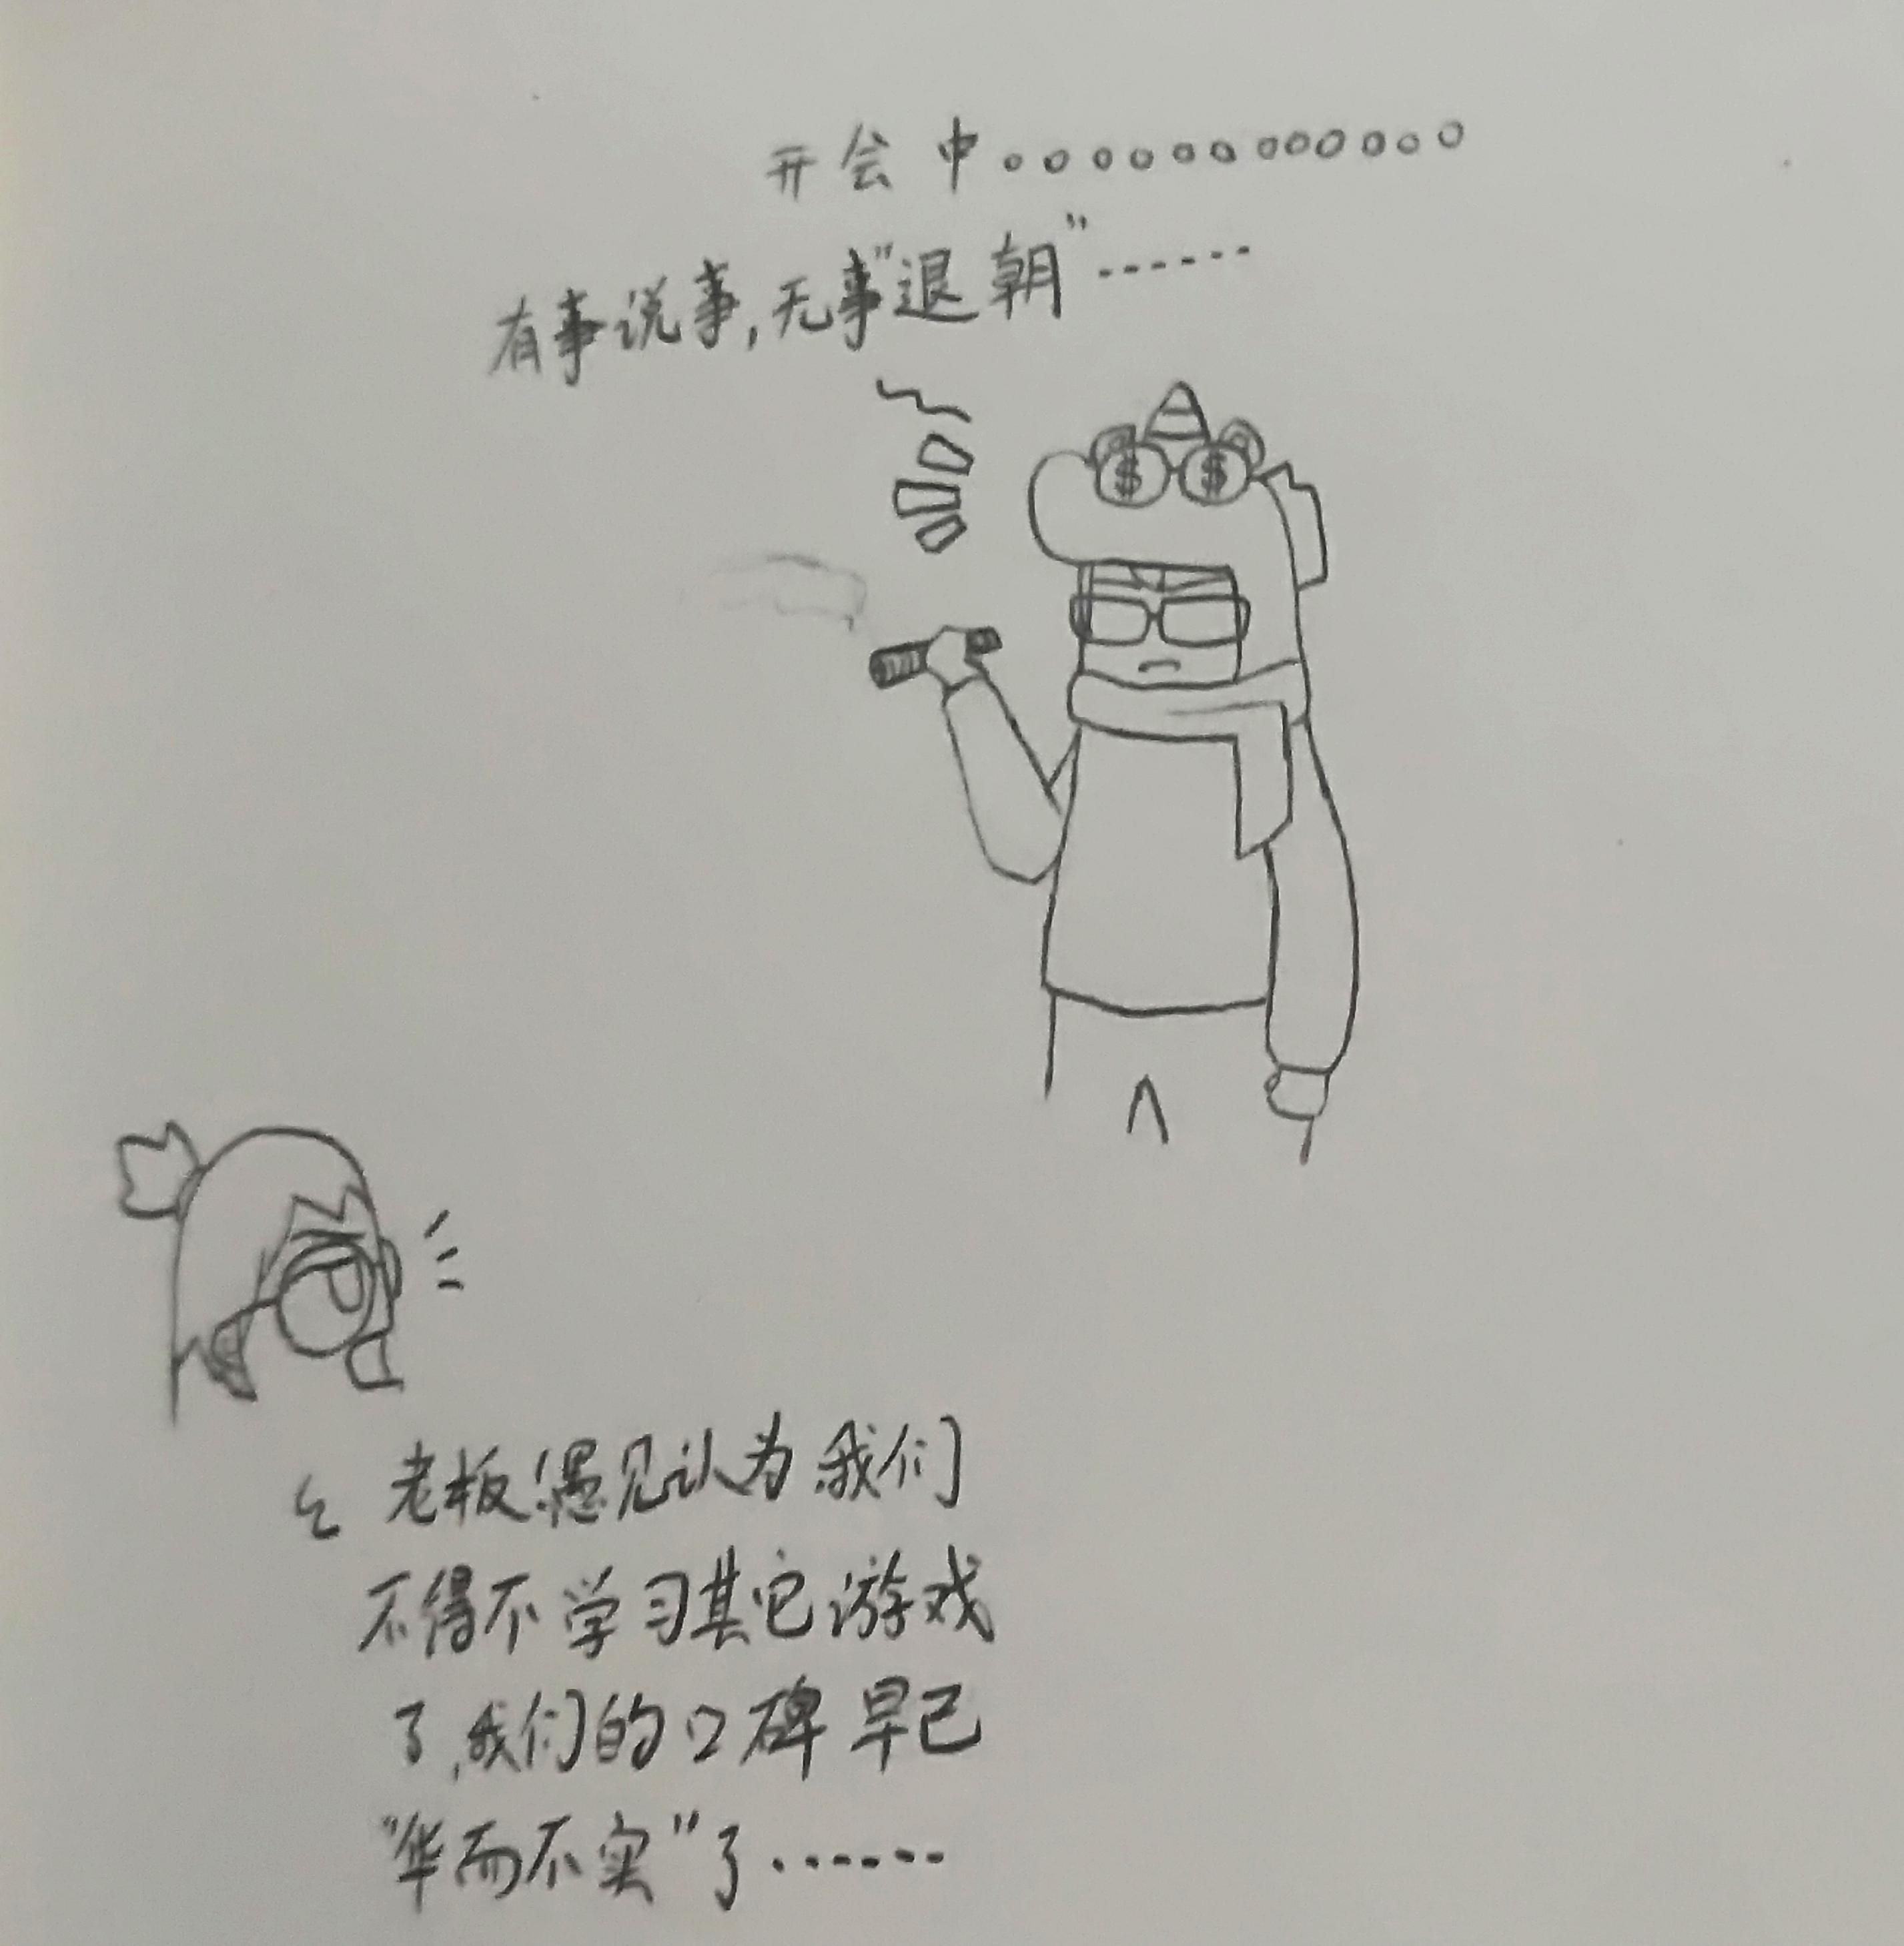 开会中。。。。。。。。。。。。
有事说事,无事"退朝"......
$ $
老板!愚见认为我们
不得不学习其它游戏
了,我们的口碑早已
"华而不实"了......